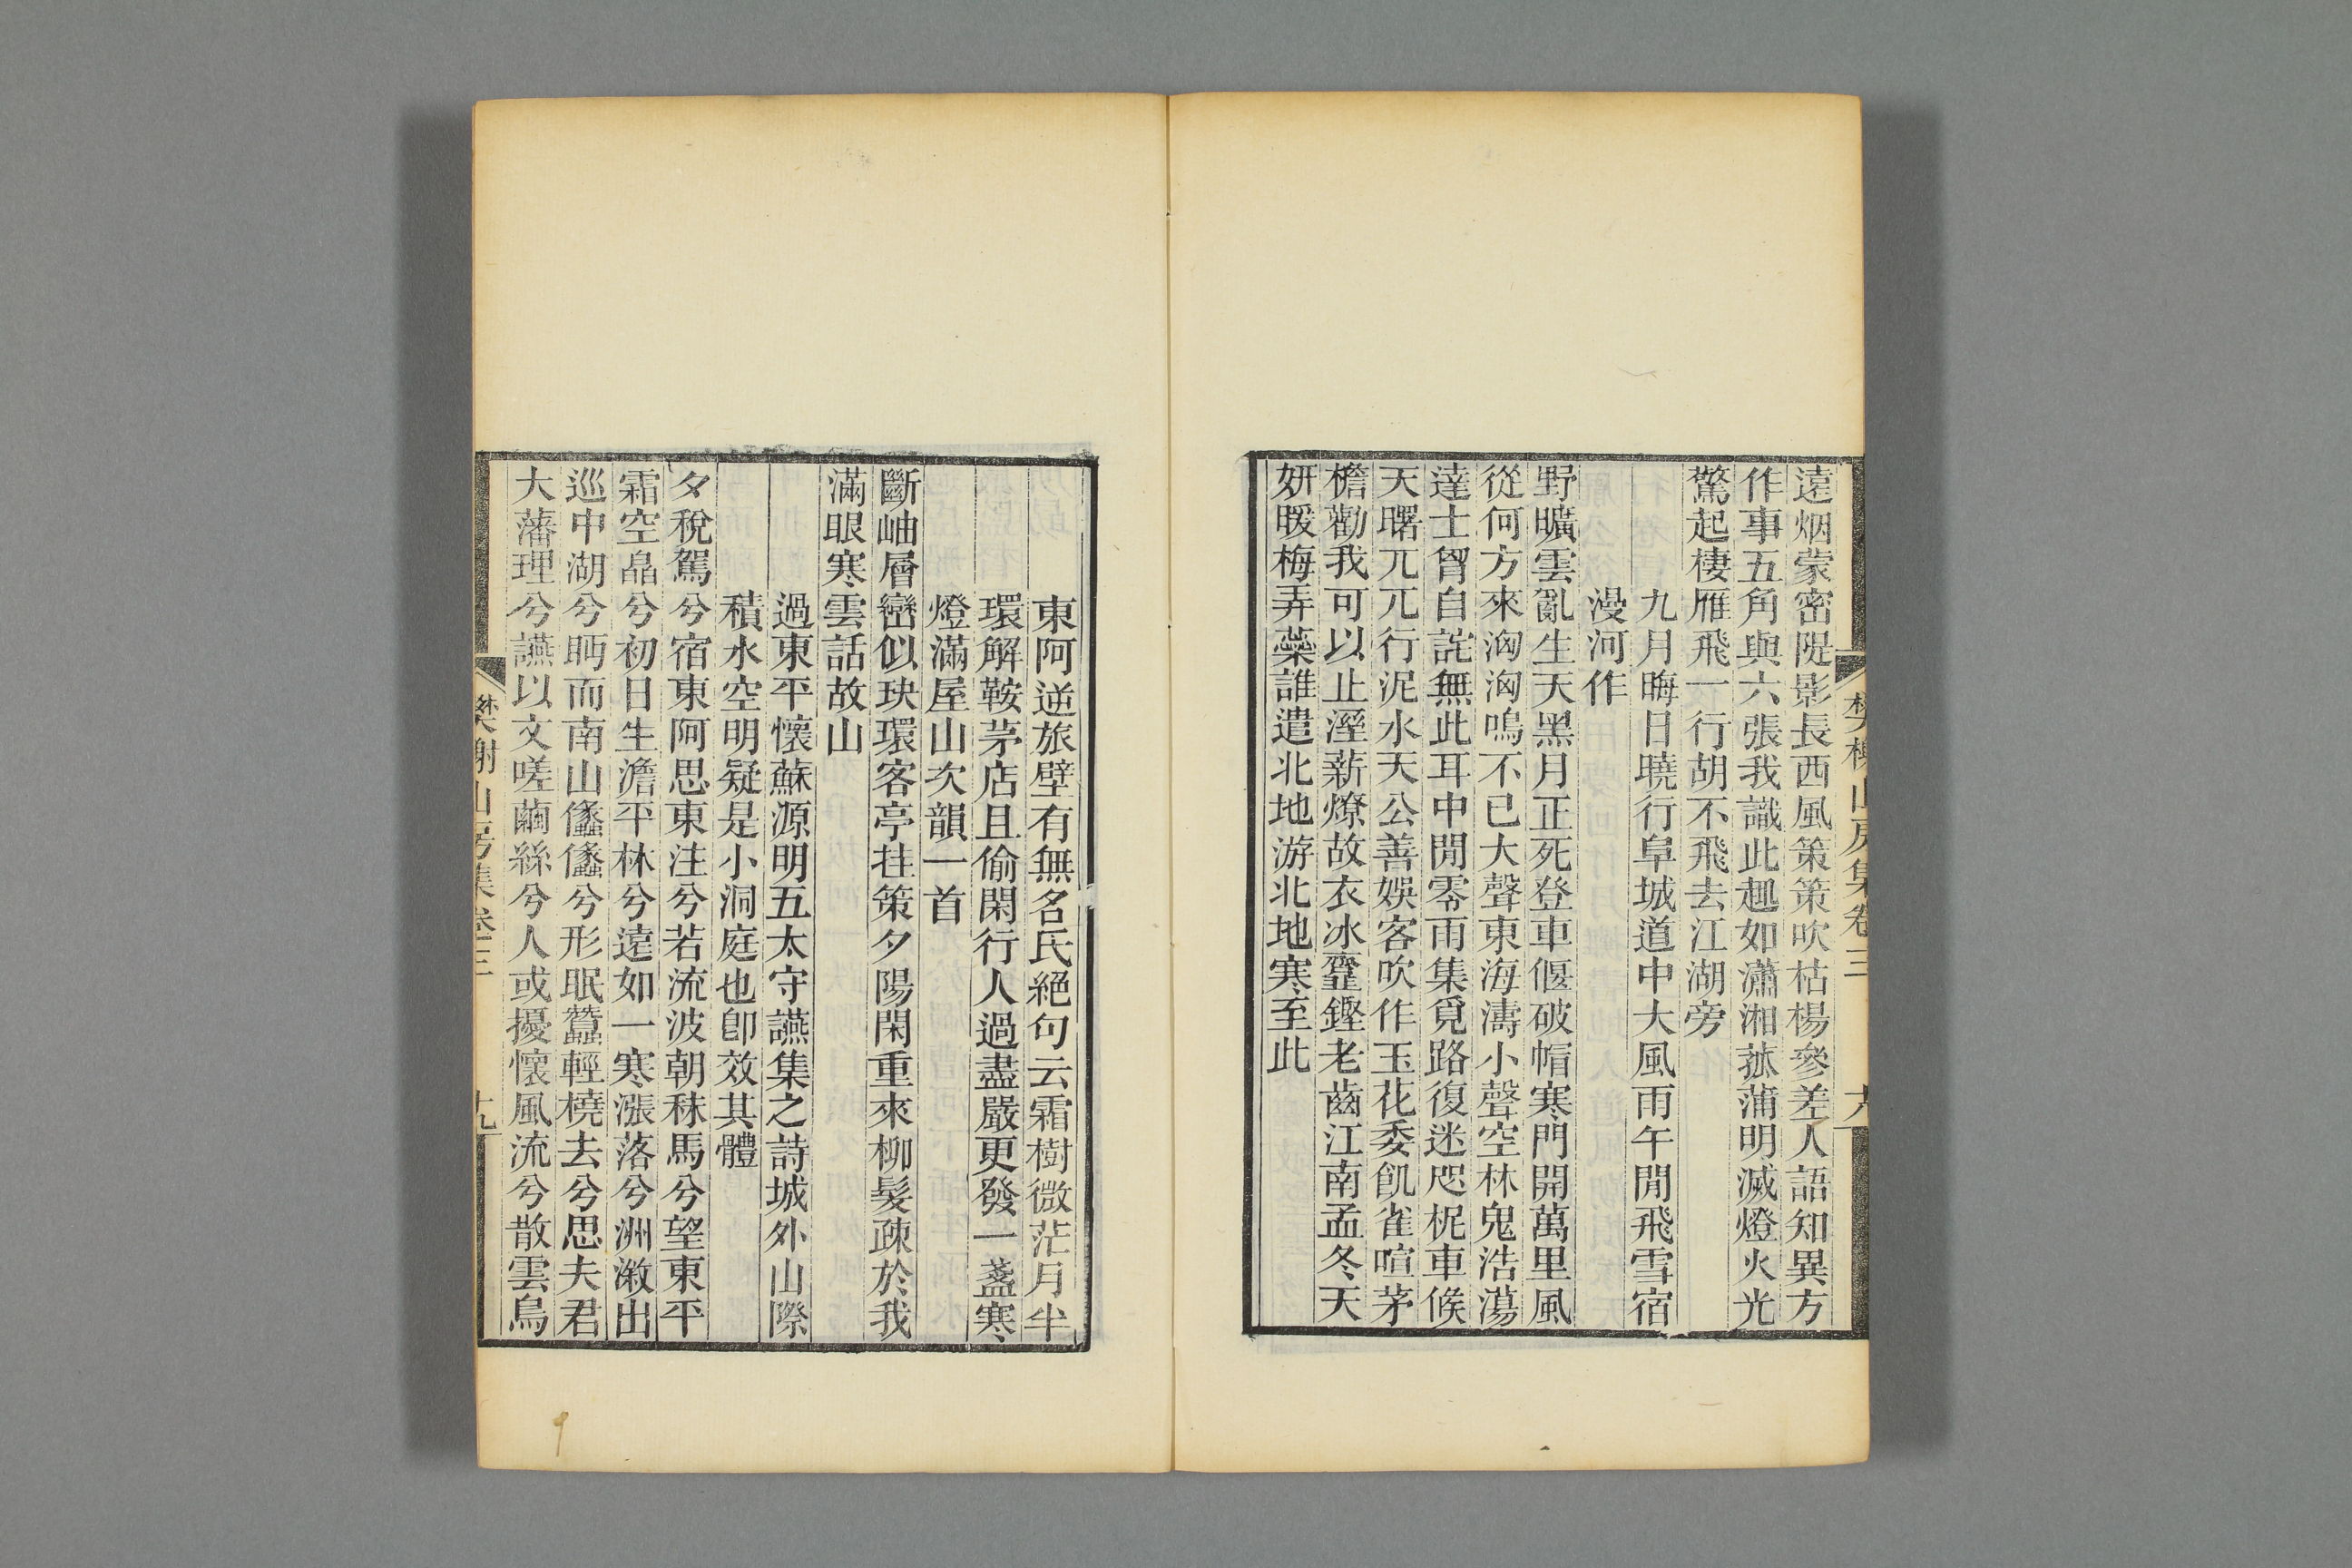 遠烟蒙密隄影長西風策策吹枯楊參差人語知異方
作事五角與六張我識此趣如瀟湘菰蒲明滅燈火光
驚起棲雁飛一行胡不飛去江湖旁
九月晦日曉行阜城道中大風雨午閒飛雪宿
漫河作
野曠雲亂生天黑月正死登車偃破帽寒門開萬里風
從何方來洶洶鳴不已大聲東海濤小聲空林鬼浩蕩
達士胷自詫無此耳中閒零雨集覓路復迷咫柅車候
天曙兀兀行泥水天公善娛客吹作玉花委飢雀喧茅
檐勸我可以止溼薪燎故衣冰虀鏗老齒江南孟冬天
妍暖梅弄蘂誰遣北地游北地寒至此
樊榭山房集卷三
東阿逆旅壁有無名氏絕句云霜樹微茫月半
環解鞍茅店且偷閑行人過盡嚴更發一盞寒
燈滿屋山次韻一首
斷岫層巒似玦環客亭拄策夕陽閑重來柳髮疎於我
滿眼寒雲話故山
過東平懷蘇源明五太守讌集之詩城外山際
積水空明疑是小洞庭也卽效其體
夕稅駕兮宿東阿思東注兮若流波朝秣馬兮望東平
霜空皛兮初日生澹平林兮遠如一寒漲落兮洲溆出
巡中湖兮眄而南山儵儵兮形眠蠶輕橈去兮思夫君
大藩理兮讌以文嗟繭絲兮人或擾懷風流兮散雲鳥
樊榭山房集卷三
十九